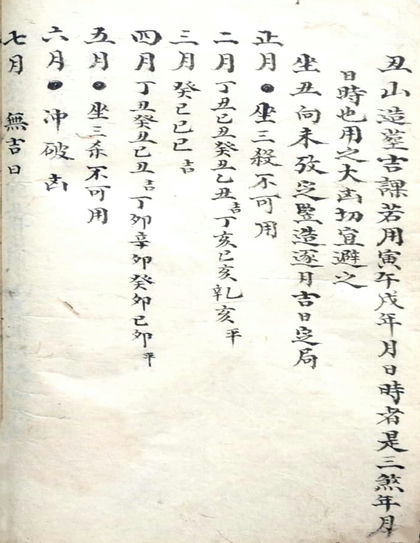 丑山造塋吉課若用寅午戌年月日時者是三煞年月
日時也用之大凶切宜避之
坐丑向未攷定監造逐月吉日定局
正月●坐三殺不可用
二月丁丑己丑癸丑乙丑吉丁亥己亥乹亥平
三月癸巳己巳吉
四月丁丑癸丑己丑吉丁卯辛卯癸卯己卯平
五月●坐三杀不可用
六月●冲破凶
七月 無吉日